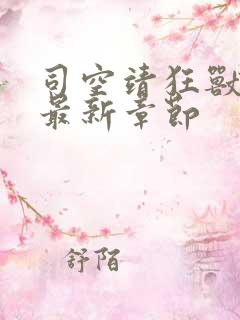 司空靖狂獸
最新章節
舒陌